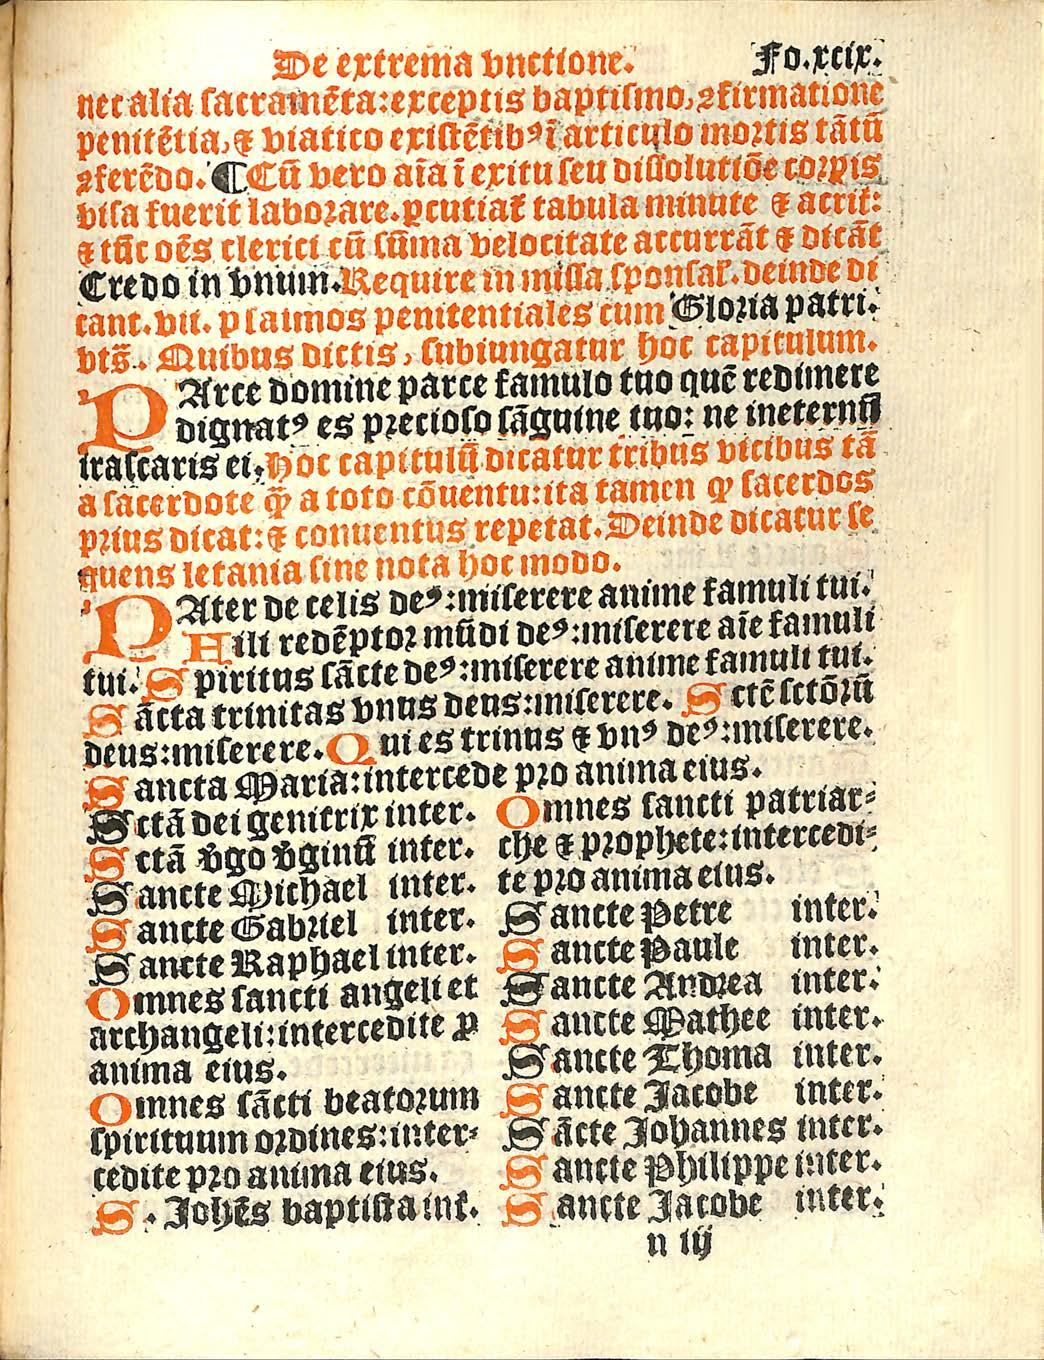 De extrema vnctione. Fo.xcix.
nec alia sacramēta:exceptis baptismo,ꝯfirmatione
penitētia,⁊ viatico existētibꝰ ī articulo mortis tātū
ꝯferēdo. ¶Cū vero aīa ī exitu seu dissolutiōe corꝑis
visa fuerit laborare.ꝑcutiat̄ tabula minute ⁊ acrit̄:
⁊ tūc oēs clerici cū sūma velocitate accurrāt ⁊ dicāt
Credo in vnum.Require in missa sponsal̄.deinde di
cant.vii.psalmos penitentiales cum Gloria patri.
vts̄. Quibus dictis, subiungatur hoc capitulum.
PArce domine parce famulo tuo quē redimere
dignatꝰ es precioso sāguine tuo: ne ineternū
irascaris ei.Hoc capitulū dicatur tribus vicibus tā
a sacerdote ꝙ̄ a toto cōuentu:ita tamen ꝙ sacerdos
prius dicat:⁊ conuentus repetat.Deinde dicatur se
quens letania sine nota hoc modo.
PAter de celis deꝰ:miserere anime famuli tui.
Fili redēptor mūdi deꝰ:miserere aīe famuli
tui. Spiritus sācte deꝰ:miserere anime famuli tui.
Sācta trinitas vnus deus:miserere. Sctē sctōrū
deus:miserere. Qui es trinus ⁊ vnꝰ deꝰ:miserere.
Sancta Maria:intercede pro anima eius.
Sctā dei genitrix inter.
Sctā v̄go v̄ginū inter.
Sancte Michael inter.
Sancte Gabriel inter.
Sancte Raphael inter.
Omnes sancti angeli et
archangeli:intercedite ꝓ
anima eius.
Omnes sācti beatorum
spirituum ordines:inter⸗
cedite pro anima eius.
S. Johēs baptista int̄.
Omnes sancti patriar⸗
che ⁊ prophete:intercedi⸗
te pro anima eius.
Sancte Petre inter.
Sancte Paule inter.
Sancte Andrea inter.
Sancte Mathee inter.
Sancte Thoma inter.
Sancte Jacobe inter.
Sācte Johannes inter.
Sancte Philippe inter.
Sancte Jacobe inter.
n iij